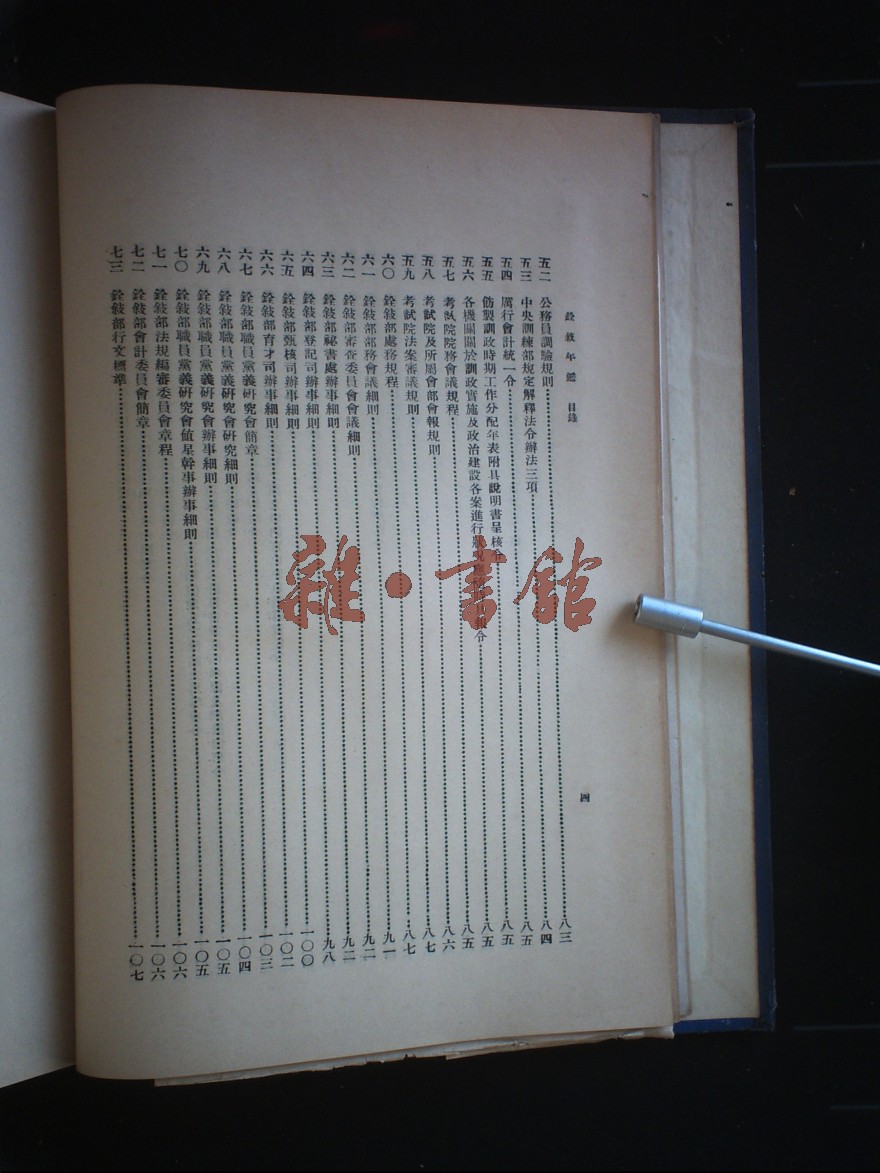 銓敘年鑑　目錄
四
五二　公務員調驗規則……八三
五三　中央訓練部規定解釋法令辦法三項……八四
五四　厲行會計統一令……八五
五五　仿製訓政時期工作分配年表附具說明書呈核令……八五
五六　各機關關於訓政實施及政治建設各案進行狀況報令……八五
五七　考試院院務會議規程……八五
五八　考試院及所屬會部會報規則……八六
五九　考試院法案審議規則……八七
六〇　銓敘部處務規程……八七
六一　銓敘部部務會議細則……九一
六二　銓敘部審查委員會會議細則……九二
六三　銓敘部祕書處辦事細則……九二
六四　銓敘部登記司辦事細則……九八
六五　銓敘部甄核司辦事細則……一〇〇
六六　銓敘部育才司辦事細則……一〇二
六七　銓敘部職員黨義研究會簡章……一〇三
六八　銓敘部職員黨義研究會研究細則……一〇四
六九　銓敘部職員黨義研究會辦事細則……一〇五
七〇　銓敘部職員黨義研究會值星幹事辦事細則……一〇五
七一　銓敘部法規編審委員會章程……一〇六
七二　銓敘部會計委員會簡章……一〇六
七三　銓敘部行文標準……一〇七
雜·書館